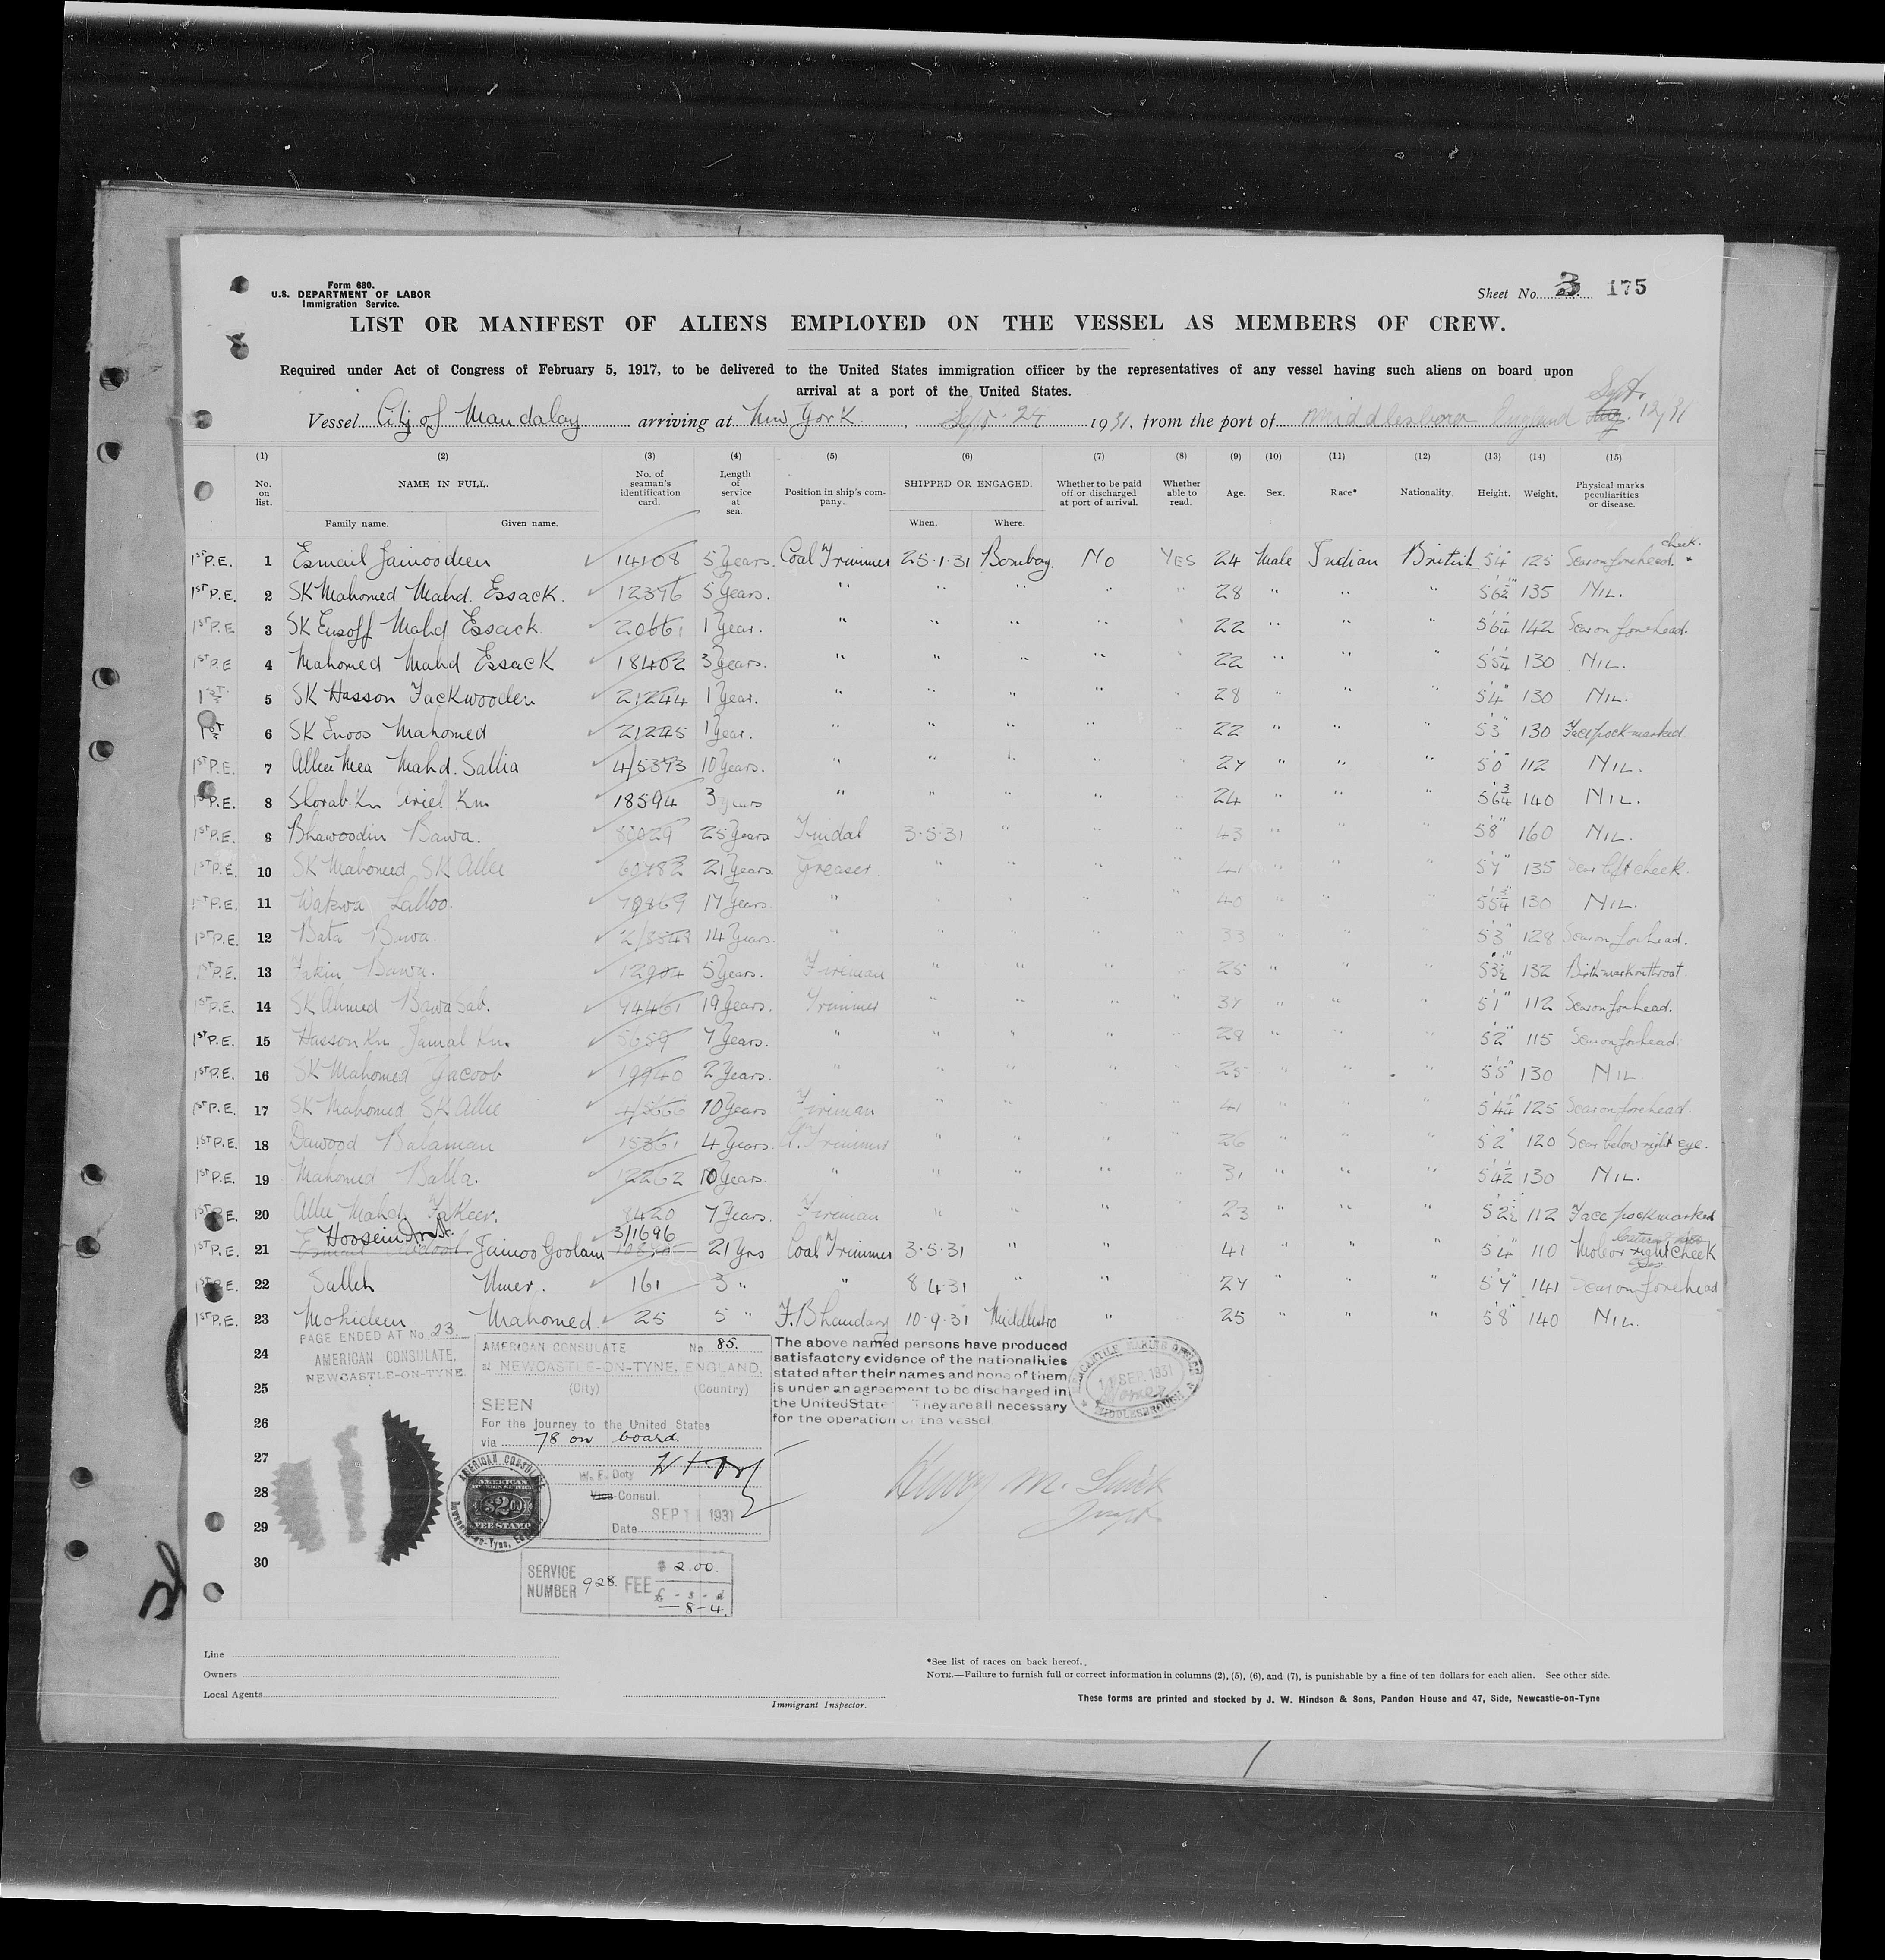 Form 680.
U.S. DEPARTMENT OF LABOR
Immigration Service.
Sheet No. 3 175
LIST OR MANIFEST OF ALIENS EMPLOYED ON THE VESSEL AS MEMBERS OF CREW.
Required under Act of Congress of February 5, 1917, to be delivered to the United States immigration officer by the representatives of any vessel having such aliens on board upon
arrival at a port of the United States.
Sept.
Vessel City of Mandalay arriving at New York Sept. 24 1931, from the port of Middlesboro England 12/31
(1) (2) (3) (4) (5) (6) (7) (8) (9) (10) (11) (12) (13) (14) (15)
No. on list. NAME IN FULL. No. of seaman's identification card. Length of service at sea. Position in ship's company. SHIPPED OR ENGAGED. Whether to be paid off or discharged at port of arrival. Whether able to read. Age. Sex. Race* Nationality. Height. Weight. Physical marks peculiarities or disease.
Family name. Given name. When. Where.
cheek.
1st P.E. 1 Esmail Jainoodeen 14108 5 Years. Coal Trimmer 25·1·31 Bombay. No YES 24 Male Indian British 5'4" 125 Scar on forehead.
1st P.E. 2 SK Mahomed Mahd. Essack. 12376 5 Years. " " " " " 28 " " " 5'6½" 135 NIL.
1st P.E 3 SK Eusoff Mahd Essack. 20661 1 Year. " " " " " 22 " " " 5'6¼ 142 Scar on forehead.
1st P.E 4 Mahomed Mahd Essack 18402 3 Years. " " " " " 22 " " " 5'5¼ 130 NIL.
1st 5 SK Hasson Fackwooden 21244 1 Year. " " " " " 28 " " " 5'4" 130 NIL.
1st 6 SK Enoos Mahomed 21245 1 Year. " " " " " 22 " " " 5'3" 130 Face pock-marked.
1st P.E. 7 Allee Mea Mahd. Sallia 4/5373 10 Years. " " " " " 27 " " " 5'0" 112 NIL.
1st P.E. 8 Shorab Kn Uriel Kn. 18594 3 years " " " " " 24 " " " 5'6¾ 140 NIL.
1st P.E. 9 Bhawoodin Bawa. 25 Years Tindal 3·5·31 " " " 43 " " " 5'8" 160 NIL.
1st P.E. 10 SK Mahomed SK Allie 60782 21 Years Greaser. " " " " 41 " " " 5'7" 135 Scar left cheek.
1st P.E. 11 Lalloo. 79869 17 Years. " " " " " 40 " " " 5'5¾ 130 NIL.
1st P.E. 12 Bata Bawa. 14 Years. " " " " " 33 " " " 5'3" 128 Scar on forhead.
1st P.E. 13 Fakin Bawa. 12904 5 Years. Fireman " " " " 25 " " " 5'3½ 132 Birthmark on throat.
1st P.E. 14 SK Ahmed Bawa Sab. 74461 19 Years. Trimmer " " " " 37 " " " 5'1" 112 Scar on forhead.
1st P.E. 15 Hasson Kn Jamal Kn. 5659 7 Years. " " " " " 28 " " " 5'2" 115 Scar on forhead.
1st P.E. 16 SK Mahomed Yacoob 19940 2 Years. " " " " " 25 " " " 5'5" 130 NIL.
1st P.E. 17 SK Mahomed SK Allie 4/5666 10 Years Fireman " " " " 41 " " " 5'4¼" 125 Scar on forehead.
1st P.E. 18 Dawood Balaman 15361 4 Years. Trimmer " " " " 26 " " " 5'2" 120 Scar below right eye.
1st P.E. 19 Mahomed Balla. 12262 10 Years. " " " " " 31 " " " 5'4½ 130 NIL.
1st P.E. 20 Allie Mahd. Fakeer. 8420 7 Years. Fireman " " " " 23 " " " 5'2½ 112 Face pockmarked
Hoosein 3/1696
1st P.E. 21 Jainoo Goolam 21 Yrs Coal Trimmer 3·5·31 " " 41 " " " 5'4" 110 Mole on right cheek
1st P.E. 22 Salleh Umer. 161 3 " " 8·4·31 " " 27 " " " 5'7" 141 Scar on forehead
1st P.E. 23 Mohideen Mahomed. 25 5 " F. Bhandary 10·9·31 Middlesbro " 25 " " " 5'8" 140 NIL.
24
25
26
27
28
29
30
PAGE ENDED AT No. 23.
AMERICAN CONSULATE,
NEWCASTLE-ON-TYNE.
AMERICAN CONSULATE No. 85.
at NEWCASTLE-ON-TYNE, ENGLAND.
(City) (Country)
SEEN
For the journey to the United States
via 78 on board.
W. F. Doty
Vice Consul.
SEP 11 1931
Date
The above named persons have produced
satisfactory evidence of the nationalities
stated after their names and none of them
is under an agreement to be discharged in
the United State They are all necessary
for the operation of the vessel.
MERCANTILE MARINE OFFICE
11 SEP. 1931
MIDDLESBROUGH
AMERICAN CONSULATE
Newcastle-on-Tyne, England
AMERICAN
FOREIGN SERVICE
$2.00
FEE STAMP
SERVICE NUMBER 928. FEE $ 2.00.
£ - s - d
— 8 - 4.
Line
Owners
Local Agents
Immigrant Inspector.
*See list of races on back hereof.
NOTE.—Failure to furnish full or correct information in columns (2), (5), (6), and (7), is punishable by a fine of ten dollars for each alien. See other side.
These forms are printed and stocked by J. W. Hindson & Sons, Pandon House and 47, Side, Newcastle-on-Tyne